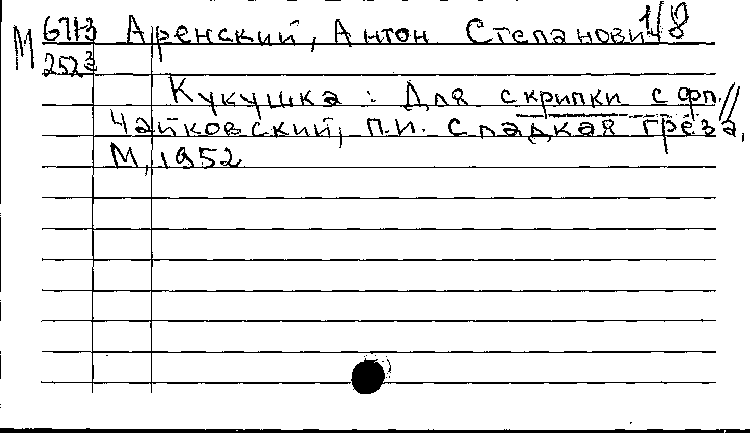 М 6713 Аренский, Антон Степанович 1/8
2523
Кукушка : Для скрипки с фп.//
Чайковский, П.И. Сладкая греза,
М., 1952